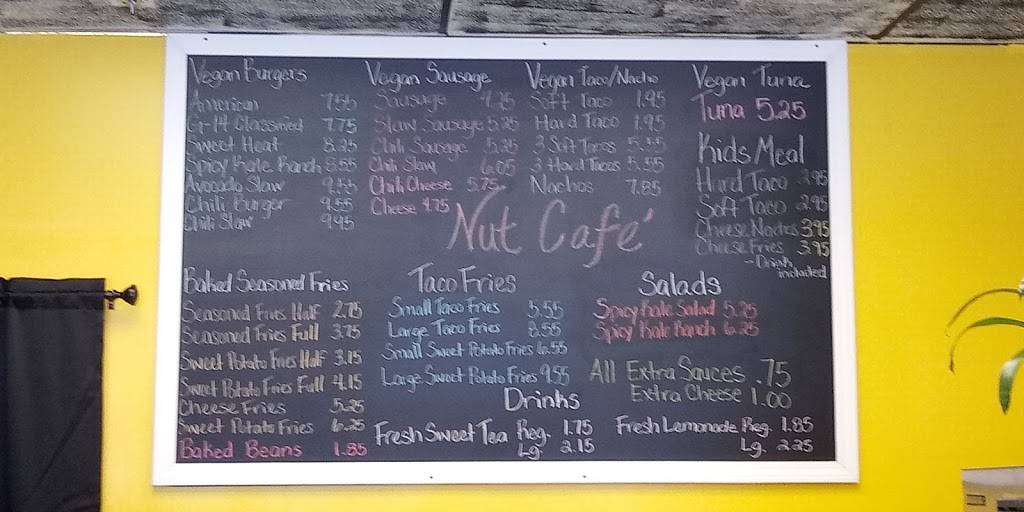 Vegan Burgers
American 7.55
G-14 Classified 7.75
Sweet Heat 8.25
Spicy Kale Ranch 8.55
Avocado Slaw 9.55
Chili Burger 9.55
Chili Slaw 9.95
Vegan Sausage
Sausage 4.25
Slaw Sausage 5.25
Chili Sausage 5.25
Chili Slaw 6.05
Chili Cheese 5.75
Cheese 4.75
Vegan Taco/Nacho
Soft Taco 1.95
Hard Taco 1.95
3 Soft Tacos 5.55
3 Hard Tacos 5.55
Nachos 7.85
Vegan Tuna
Tuna 5.25
Kids Meal
Hard Taco 2.95
Soft Taco 2.95
Cheese Nachos 3.95
Cheese Fries 3.95
- Drink included
Nut Café
Baked Seasoned Fries
Seasoned Fries Half 2.75
Seasoned Fries Full 3.75
Sweet Potato Fries Half 3.15
Sweet Potato Fries Full 4.15
Cheese Fries 5.25
Sweet Potato Fries 6.25
Baked Beans 1.85
Taco Fries
Small Taco Fries 5.55
Large Taco Fries 8.55
Small Sweet Potato Fries 6.55
Large Sweet Potato Fries 9.55
Salads
Spicy Kale Salad 5.25
Spicy Kale Ranch 6.25
All Extra Sauces .75
Extra Cheese 1.00
Drinks
Fresh Sweet Tea Reg. 1.75
Lg. 2.15
Fresh Lemonade Reg. 1.85
Lg. 2.25